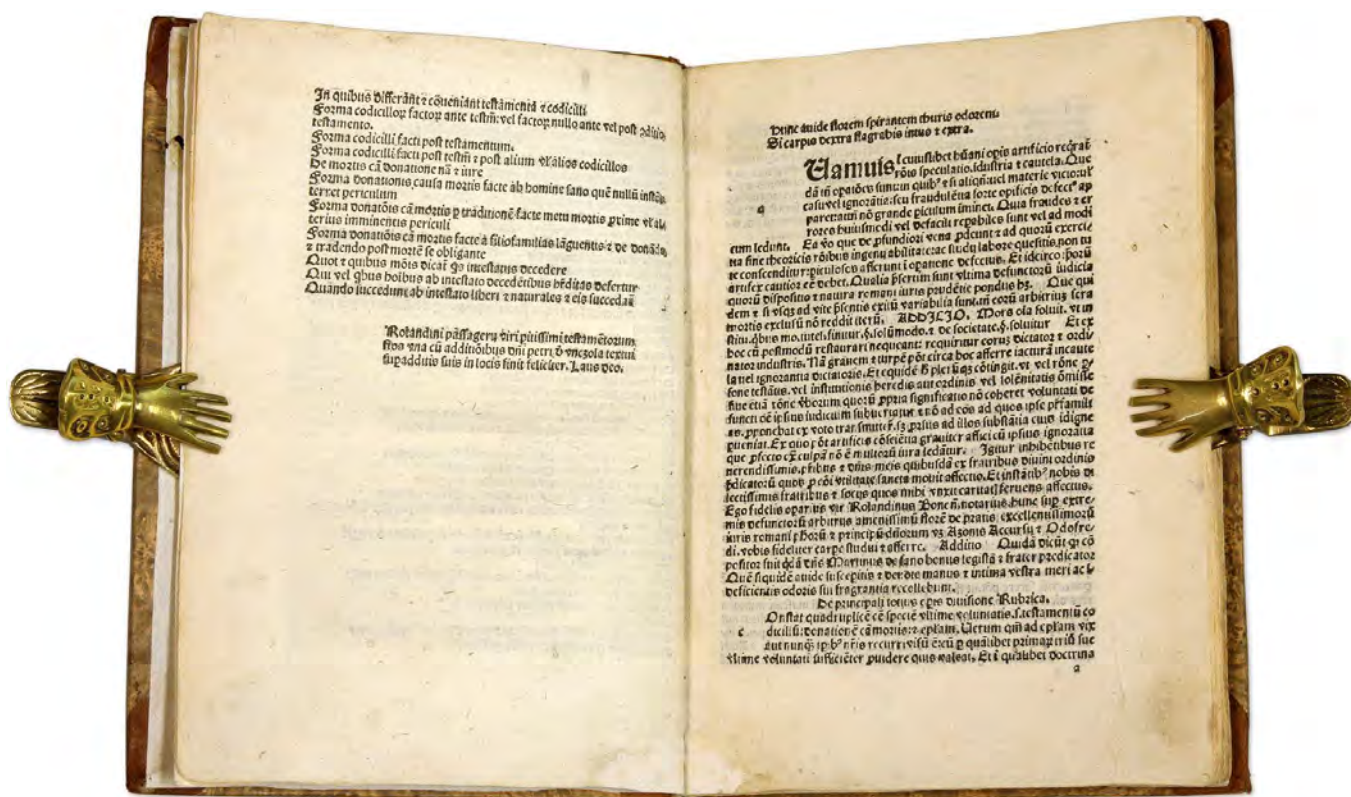 In quibus differãnt ⁊ cõueniant testamenta ⁊ codicilli
Forma codicilloꝝ factoꝝ ante testm̃: vel factoꝝ nullo ante vel post ↄdito
testamento.
Forma codicilli facti post testamentum.
Forma codicilli facti post testm̃ ⁊ post alium vłalios codicillos
De mortis cã donatione nã ⁊ iure
Forma donationis causa mortis facte ab homine sano quẽ nullũ instãs
terret periculum
Forma donatõis cã mortis ꝑ traditionẽ facte metu mortis ꝓxime vłal
terius imminentis periculi
Forma donatiõis cã mortis facte a filiofamilias lãguentis ⁊ de donãdo
⁊ tradendo post mortẽ se obligante
Quot ⁊ quibus mõis dicat̃ q̃s intestatus decedere
Qui vel qͥbus hoĩbus ab intestato decedẽtibus hr̃ditas defertur
Quando succedunt ab intestato liberi ⁊ naturales ⁊ eis succedañ
Rolandini passagerij viri ꝑitissimi testamẽtorum.
flos vna cũ additiõibus dñi petri ð vnczola textui
supadditis suis in locis finit feliciter. Laus deo.
Hunc auide florem spirantem thuris odorem.
Si carpis dextra flagrabis intus ⁊ extra.
Uamuis ĩ cuiuslibet hũani opis artificio reqͥrat̃
rõis speculatio. ĩdustria ⁊ cautela. Que
dã tñ opatões sunt in quibꝰ ⁊ si aliqñ vel materie vicio vł
casu vel ignorãtia: seu fraudulẽtia forte opificis defectꝰ ap
pareat tñ nõ grande ꝑiculum iminet. Quia fraudes ⁊ er
rores huiusmodi vel de facili reꝑabiles sunt vel ad modi
cum ledunt. Ea ṽo que de ꝓfundiori vena ꝓdeunt ⁊ ad quorũ exerci
tia sine theoricis rõibus ingenij abilitate: ac studij labore quesitis. non tu
te conscenditur: ꝑiculosos afferunt ĩ opatione defectus. Et idcirco: hoꝝ
artifex cautior eẽ debet. Qualia p̃sertim sunt vltima defunctorũ iudicia
quorũ dispositio ⁊ natura romani iuris prudẽtie pondus hꝫ. Que qui
dem ⁊ si vsqꝫ ad vite p̃sentis exitũ variabilia sunt. tñ eorũ arbitrijs sera
mortis exclusũ nõ reddit iterũ. ADDICIO. Mors oĩa soluit. vt in
stitu. qͥbus mo. tutel. finitur. §. solũmodo. ⁊ de societate. §. soluitur Et ex
hoc cũ postmodũ restaurari nequeant: requiritur eoruꝫ dictator ⁊ ordi
nator industris. Nã grauem ⁊ turpẽ põt circa hoc afferre iacturã incaute
la uel ignorantia dictatoris. Et equidẽ
sone testãtis. vel institutionis heredis aut ordinis vel solẽnitatis õmisse
siue etiã rõne ṽborum quorũ ꝓpria significatio nõ coheret voluntati de
functi oẽ ipsius iudicium
as. ꝓponebat ex voto trãsmittet̃. sꝫ ꝓrsus ad illos substãtia eius ĩdigne
ꝑueniat. Ex quo põt artificis cõsciẽtia grauiter affici cũ ipsius ignorãtia
que ꝓfecto culpã nõ multorũ iura ledãtur. Igitur inhibẽtibus re
uerendissimis. p̃ribus ⁊ dñis meis quibusdã ex fratribus diuini ordinis
p̃dicatorũ quos ꝓ cõi vtilitate sancta mouit affectio. Et instãtibꝰ nobis di
lectissimis fratribus ⁊ socijs quos mihi vnxit caritat̃ feruens affectus.
Ego fidelis oparius vir Rolandinus Bonoñ. notarius hunc sup extre
mis defunctorũ arbitrijs amenissimũ florẽ de pratis excellentissimorũ
iuris romani
di. vobis fideliter carpe studui ⁊ afferre. Additio Quidã dicũt qꝫ cõ
positor fuit qͥdã dñs Martinus de fano bonus legista ⁊ frater predicator
Quẽ siquidẽ auide suscepitis ⁊ deuote manus ⁊ intima vestra meri ac ĩ
deficientis odoris sui fragrantia recollebunt.
De principali totius opis diuisione Rubrica.
Onstat quadruplicẽ eẽ speciẽ vltime voluntatis. s. testamentũ co
c dicillũ: donationẽ cã mortis: ⁊ epłam. Uerum qm̃ ad epłam vix
aut nunqꝫ
vltime voluntati sufficiẽter ꝓuidere quis valeat. Et ĩ qualibet doctrina
a